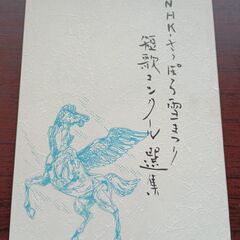 NHK・さっぽろ雪まつり
短歌コンクール選集